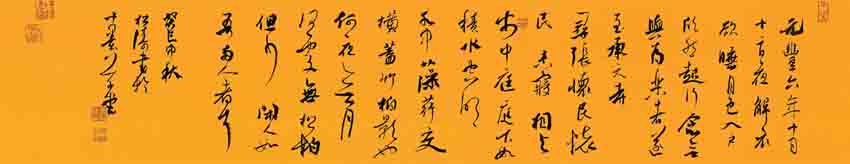 元豐六年十月
十二日夜解衣
欲睡月色入戶
欣然起行念無
與為樂者遂
至承天寺
尋張懷民懷
民未寢相與
步中庭庭下如
積水空明
水中藻荇交
橫蓋竹柏影也
何夜無月
何處無松柏
但少閑人如
吾兩人者耳
癸巳中秋
松濤書於